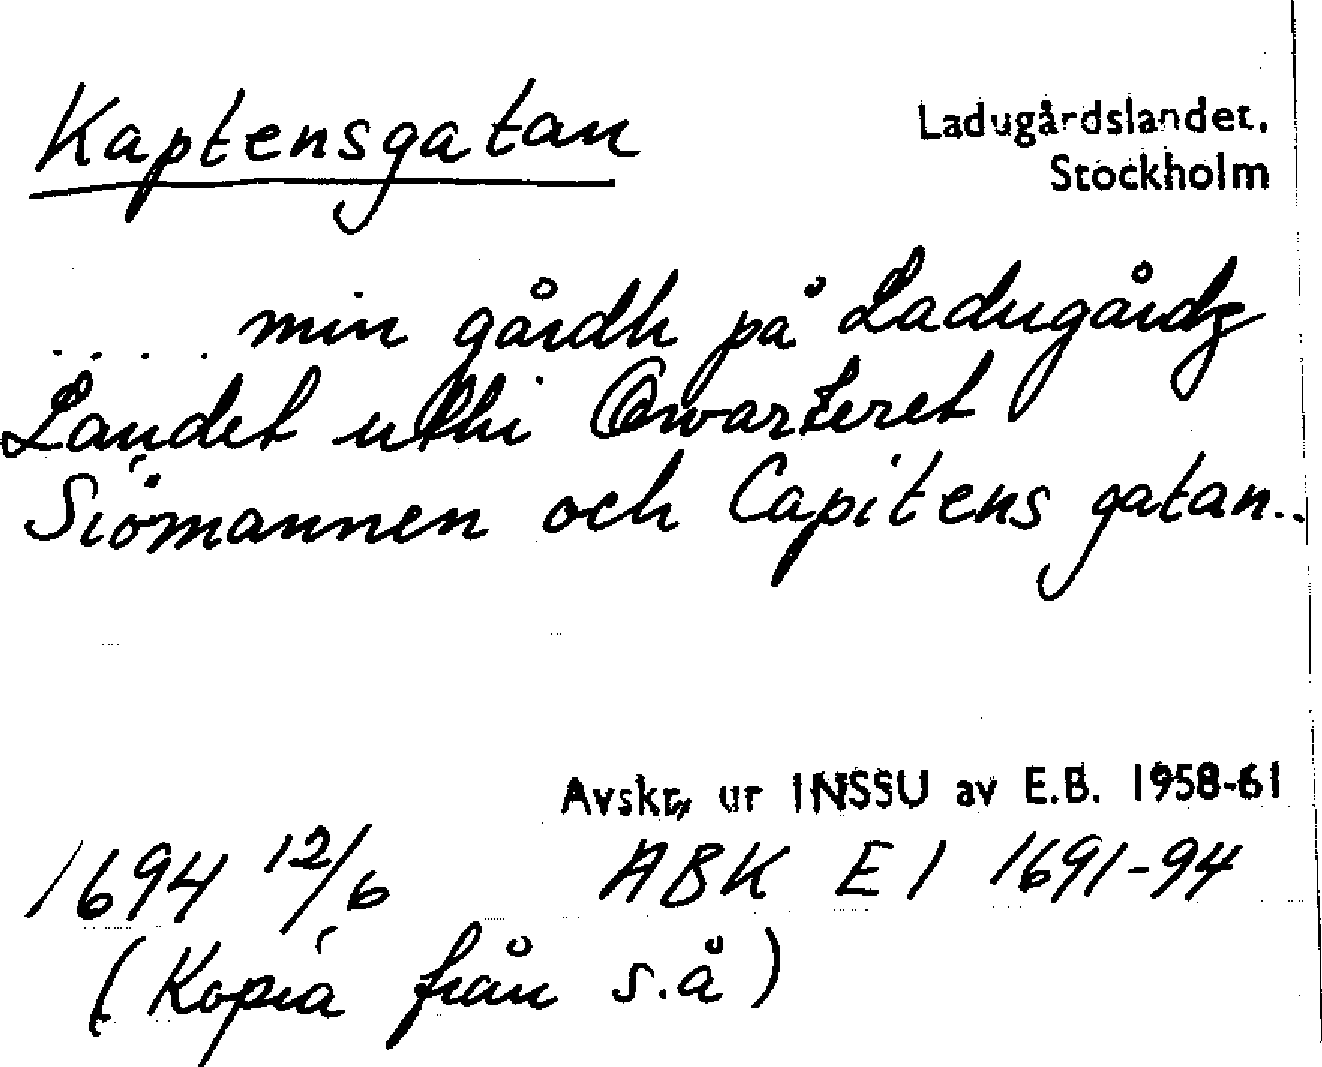 Kaptensgatan
Ladugårdslandet.
Stockholm
.... min gårdh på Ladugårdz
Landet uthi Qwarteret
Siömannen och Capitens gatan..
Avskr, ur INSSU av E.B. 1958-61
1694 12/6 ABK E1 1691-94
(Kopia från s.å)